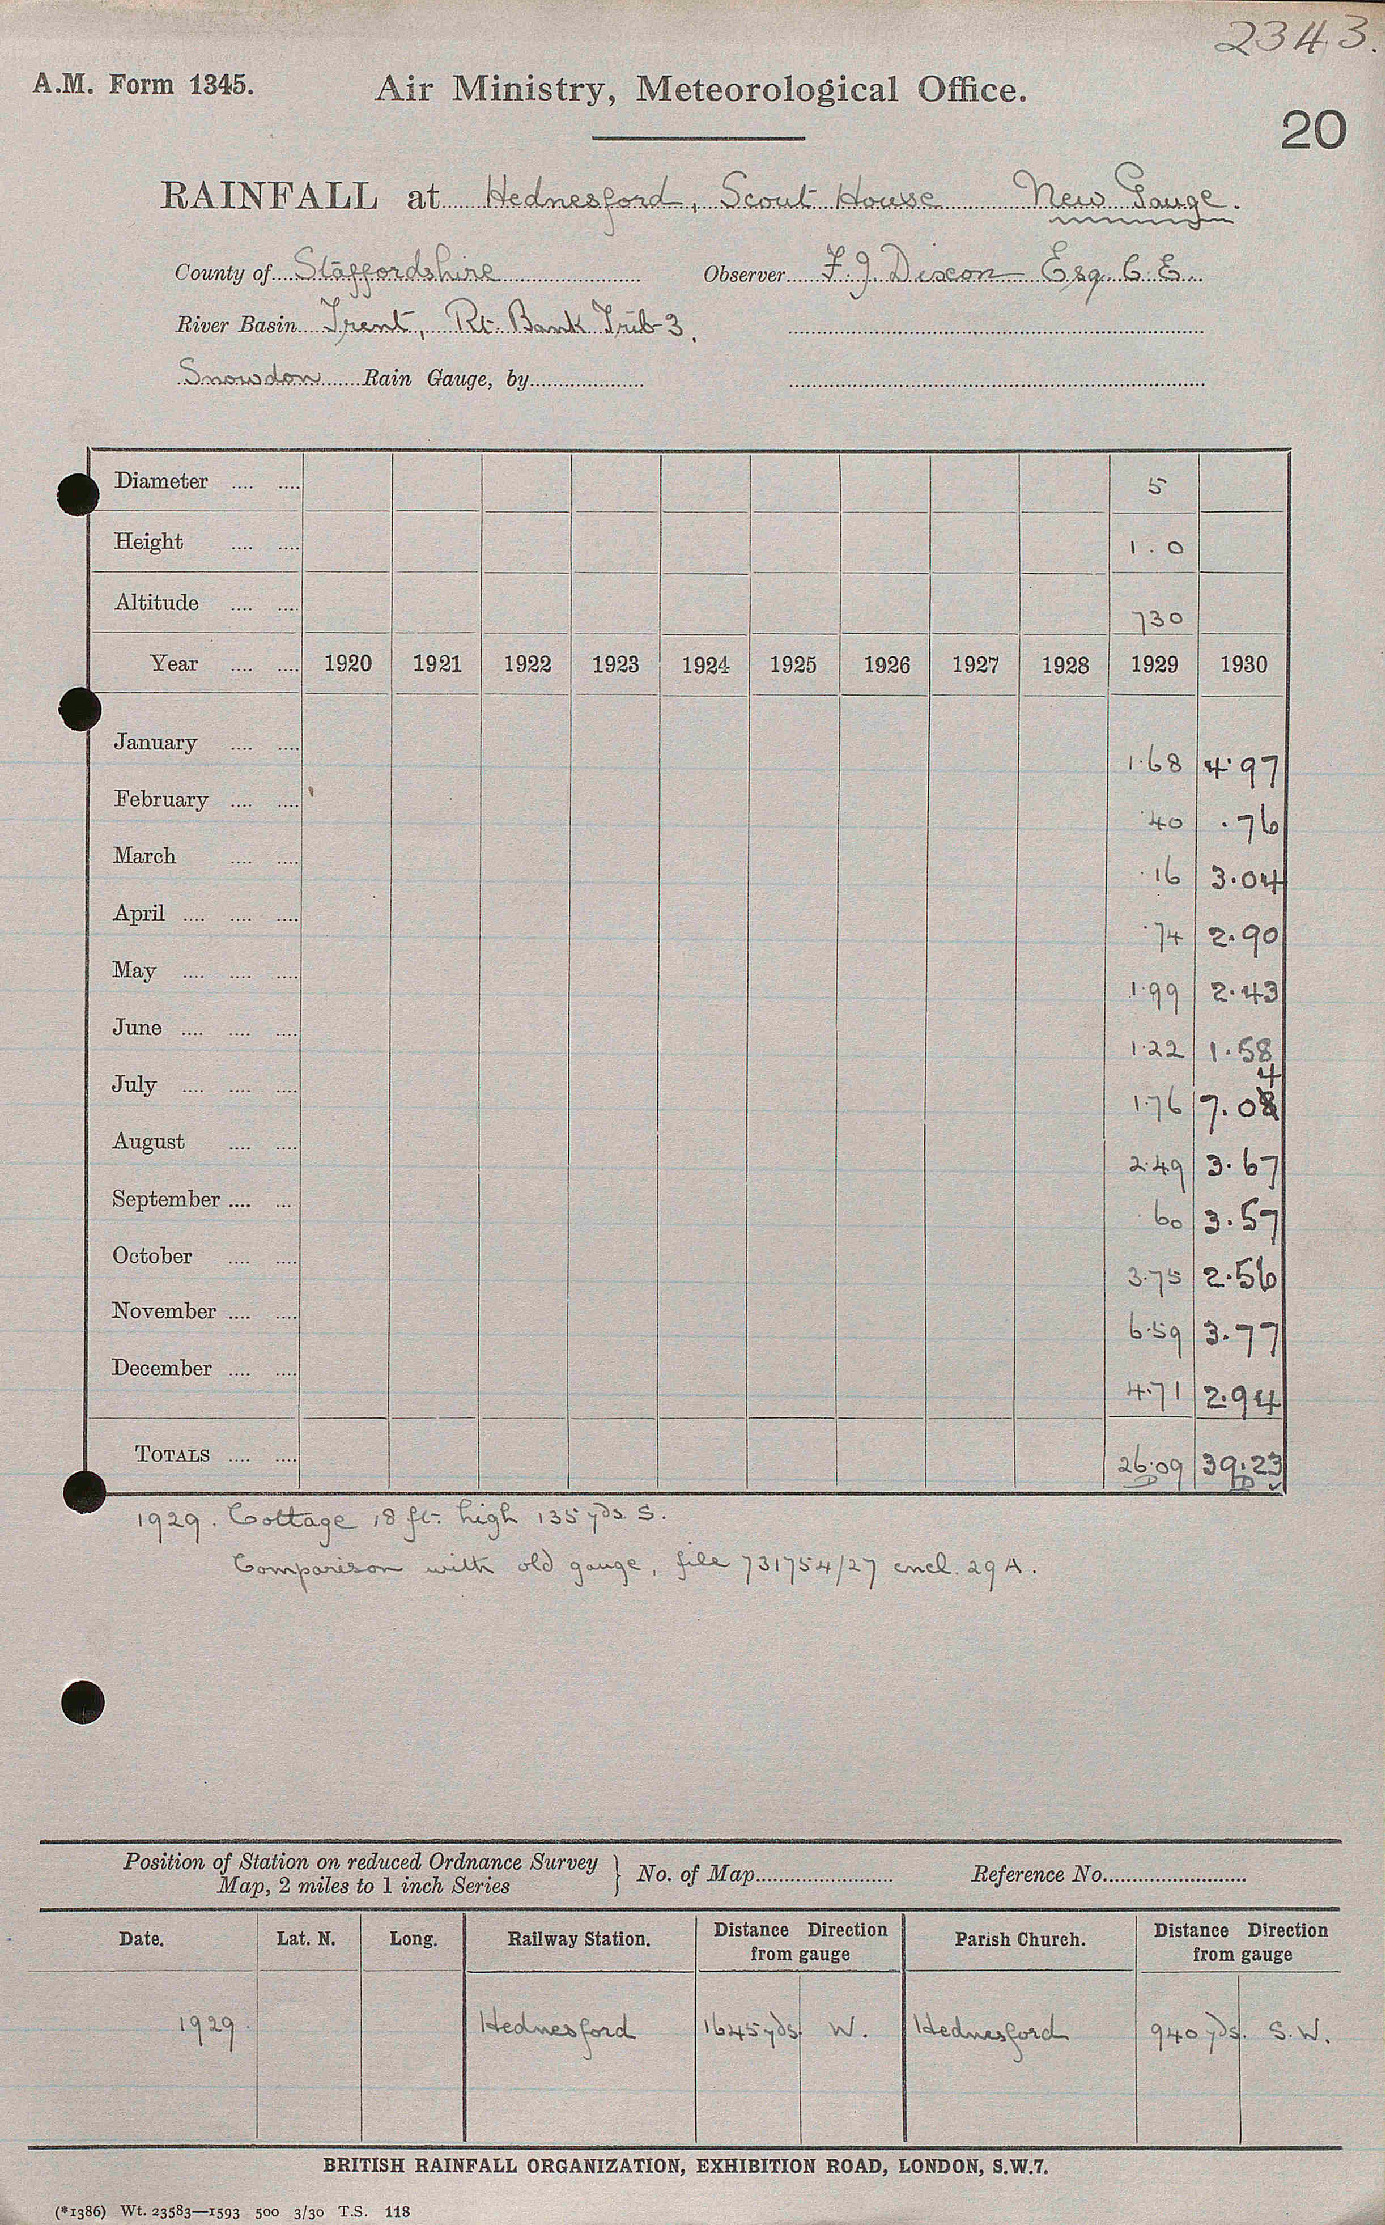 2343.
A.M. Form 1345. Air Ministry, Meteorological Office.
20
RAINFALL at Hednesford, Scout House New Gauge.
County of Staffordshire Observer F. J. Dixon Esq. C. E.
River Basin Trent, Rt. Bank Trib 3.
Snowdon Rain Gauge, by
Diameter .... .... 5
Height .... .... 1.0
Altitude .... .... 730
Year .... .... 1920 1921 1922 1923 1924 1925 1926 1927 1928 1929 1930
January .... .... 1.68 4.97
February .... .... .40 .76
March .... .... .16 3.04
April .... .... .... .74 2.90
May .... .... .... 1.99 2.43
June .... .... .... 1.22 1.58
4
July .... .... .... 1.76 7.08
August .... .... 2.49 3.67
September .... .... .60 3.57
October .... .... 3.75 2.56
November .... .... 6.59 3.77
December .... .... 4.71 2.94
TOTALS .... .... 26.09 39.23
1929. Cottage 18 ft. high 135 yds. S.
Comparison with old gauge, file 731754/27 encl. 29A.
Position of Station on reduced Ordnance Survey Map, 2 miles to 1 inch Series } No. of Map Reference No.
Date. Lat. N. Long. Railway Station. Distance Direction from gauge Parish Church. Distance Direction from gauge
1929 Hednesford 1645 yds. W. Hednesford 940 yds. S.W.
BRITISH RAINFALL ORGANIZATION, EXHIBITION ROAD, LONDON, S.W.7.
(*1386) Wt. 23583—1593 500 3/30 T.S. 118